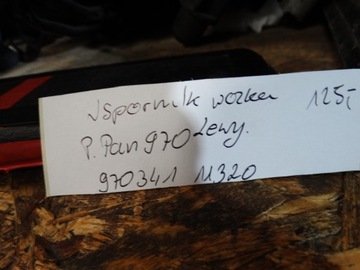 Wspornik wózka 125,-
P. Pan 970 Lewy.
970341 M320